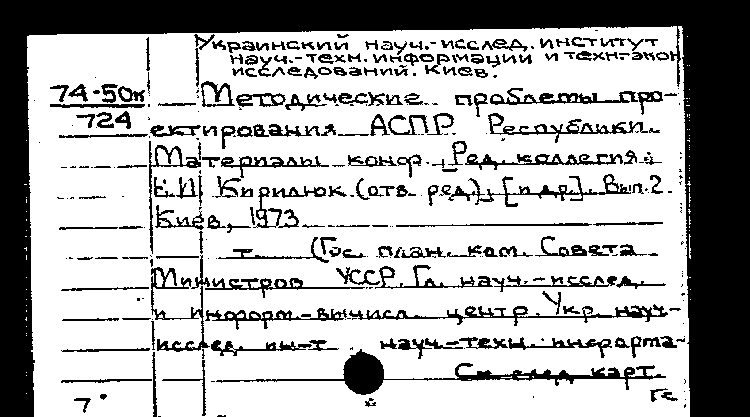 Украинский науч.-исслед. институт
науч.-техн. информации и техн-экон
исследований. Киев.
74-50к Методические проблемы про-
724 ектирования АСПР Республики.
Материалы конф. Ред. коллегия:
Е.И. Кирилюк (отв. ред.), [и др.]. Вып.2.
Киев, 1973
т. (Гос. план. ком. Совета
Министров УССР. Гл. науч.-исслед.
и информ.-вычисл. центр. Укр. науч-
исслед. ин-т науч.-техн. информа-
См. след. карт.
7 Гс